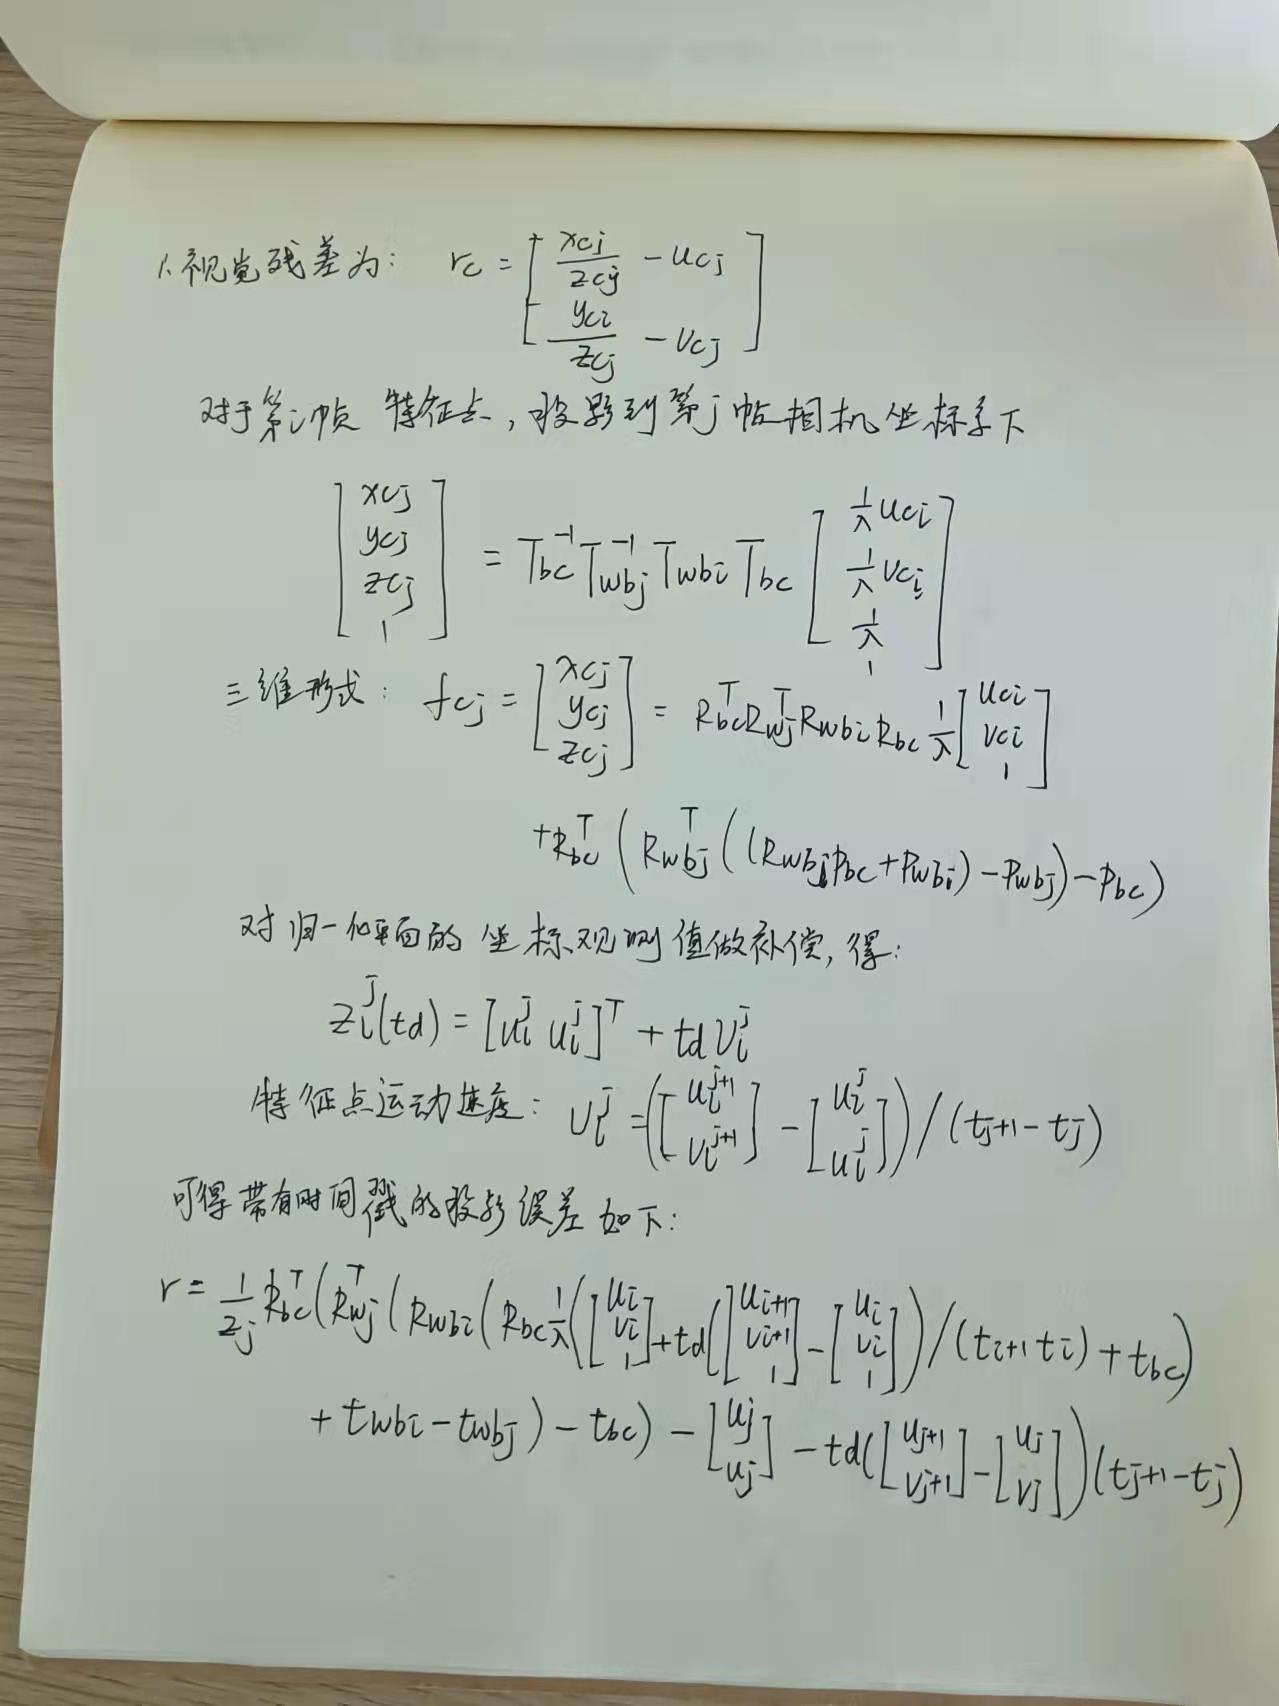 1、视觉残差为： rc = [ xcj/zcj - ucj ; yci/zcj - vcj ]
对于第i帧 特征点，投影到第j帧相机坐标系下
[ xcj ; ycj ; zcj ; 1 ] = Tbc^-1 Twbj^-1 Twbi Tbc [ 1/λ uci ; 1/λ vci ; 1/λ ; 1 ]
三维形式： fcj = [ xcj ; ycj ; zcj ] = Rbc^T Rwj^T Rwbi Rbc 1/λ [ uci ; vci ; 1 ]
+ Rbc^T ( Rwbj^T ( (Rwbi Pbc + Pwbi) - Pwbj ) - Pbc )
对归一化平面的 坐标观测值做补偿，得：
zi^j(td) = [ui^j ui^j]^T + td Vi^j
特征点运动速度： Vi^j = ( [ ui^j+1 ; vi^j+1 ] - [ ui^j ; ui^j ] ) / (tj+1 - tj)
可得带有时间戳的投影误差如下：
r = 1/zj Rbc^T ( Rwj^T ( Rwbi ( Rbc 1/λ ( [ ui ; vi ; 1 ] + td ( [ ui+1 ; vi+1 ; 1 ] - [ ui ; vi ; 1 ] ) / (ti+1 ti) + tbc )
+ twbi - twbj ) - tbc ) - [ uj ; uj ] - td ( [ uj+1 ; vj+1 ] - [ uj ; vj ] ) (tj+1 - tj)